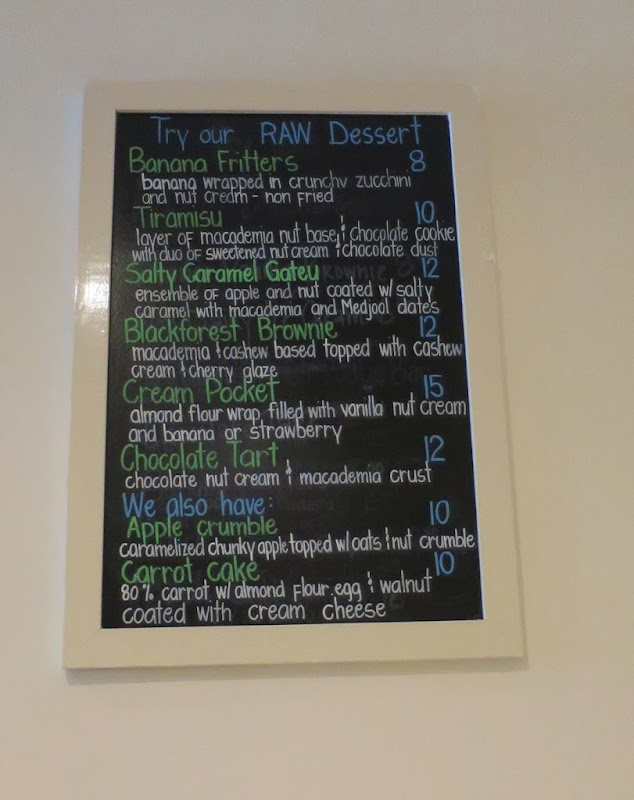 Try our RAW Dessert
Banana Fritters 8
banana wrapped in crunchy zucchini
and nut cream - non fried
Tiramisu 10
layer of macademia nut base, & chocolate cookie
with duo of sweetened nut cream & chocolate dust
Salty Caramel Gateu 12
ensemble of apple and nut coated w/ salty
caramel with macademia and Medjool dates
Blackforest Brownie 12
macademia & cashew based topped with cashew
cream & cherry glaze
Cream Pocket 15
almond flour wrap, filled with vanilla nut cream
and banana or strawberry
Chocolate Tart 12
chocolate nut cream & macademia crust
We also have:
Apple crumble 10
caramelized chunky apple topped w/ oats & nut crumble
Carrot cake 10
80% carrot w/ almond flour, egg & walnut
coated with cream cheese